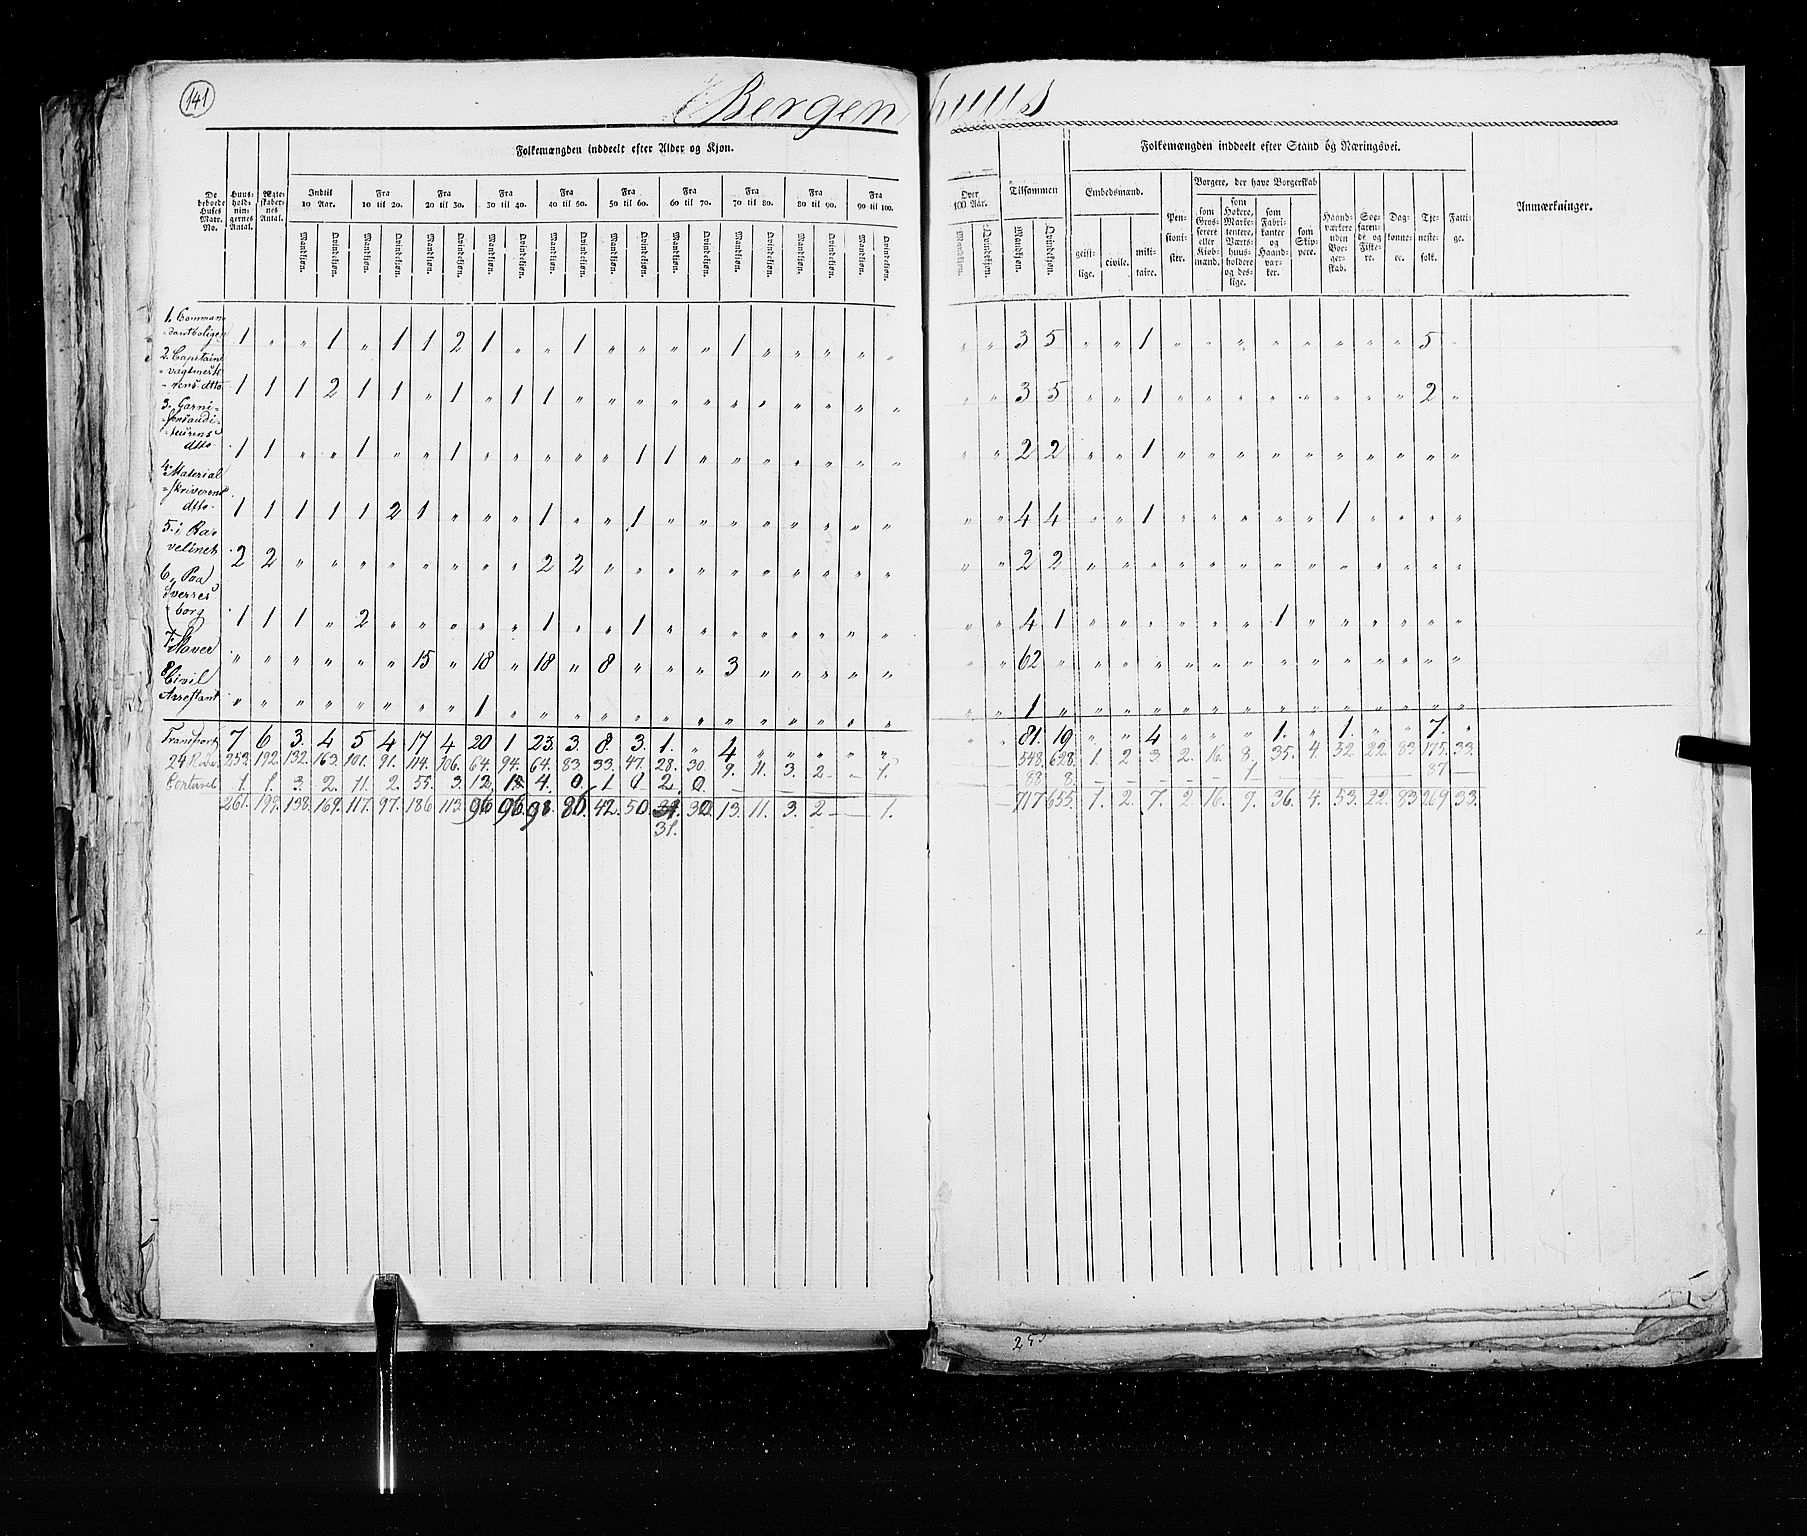 141
Bergenhuus
Folkemængden inddeelt efter Alder og Kjøn.
Folkemængden inddeelt efter Stand og Næringsvei.
De beboede Huses Matr. No. | Huusholdningernes Antal. | Ægteskabernes Antal. | Indtil 10 Aar. | Fra 10 til 20. | Fra 20 til 30. | Fra 30 til 40. | Fra 40 til 50. | Fra 50 til 60. | Fra 60 til 70. | Fra 70 til 80. | Fra 80 til 90. | Fra 90 til 100. | Over 100 Aar. | Tilsammen | Embedsmænd. | Pensionister. | Borgere, der have Borgerskab | Haandværkere uden Borgerskab. | Søefarende og Fiskere. | Dagleiere. | Tjenestefolk. | Fattige. | Anmærkninger.
Mandkjøn. Qvindekjøn. Mandkjøn. Qvindekjøn. Mandkjøn. Qvindekjøn. Mandkjøn. Qvindekjøn. Mandkjøn. Qvindekjøn. Mandkjøn. Qvindekjøn. Mandkjøn. Qvindekjøn. Mandkjøn. Qvindekjøn. Mandkjøn. Qvindekjøn. Mandkjøn. Qvindekjøn. Mandkjøn. Qvindekjøn. Mandkjøn. Qvindekjøn. geistlige. civile. militaire. som Grosserere eller Kjøbmænd. som Høkere, Marketentere, Værtshuusholdere og deslige. som Fabrikanter og Haandværker. som Skippere.
1. Commandantboligen 1 " " 1 " 1 1 2 1 " " 1 " " " " 1 " " " " " " " 3 5 " " 1 " " " " " " " " 5 "
2. Capitaine vagtmesterens dtto 1 1 1 2 1 1 " 1 " 1 1 " " " " " " " " " " " " " 3 5 " " 1 " " " " " " " " 2 "
3. Garnisonsauditeurens dtto 1 1 " " 1 " " 1 " " " " " 1 1 " " " " " " " " " 2 2 " " 1 " " " " " " " " " "
4. Materialskriverens dtto 1 1 1 1 1 2 1 " " " 1 " " 1 " " " " " " " " " " 4 4 " " 1 " " " " " 1 " " " "
5. i Ravelinet 2 2 " " " " " " " " 2 2 " " " " " " " " " " " " 2 2 " " " " " " " " " " " " "
6. Paa Sverresborg 1 1 1 " 2 " " " " " 1 " " 1 " " " " " " " " " " 4 1 " " " " " " 1 " " " " " "
7. Slaver " " " " " " 15 " 18 " 18 " 8 " " " 3 " " " " " " " 62 " " " " " " " " " " " " " "
8. Civil Arrestant " " " " " " " " 1 " " " " " " " " " " " " " " " 1 " " " " " " " " " " " " " "
Transport 7 6 3. 4 5 4 17 4 20 1 23. 3. 8. 3. 1. " 4 " " " " " " " 81. 19 " " 4 " " " 1. " 1. " " 7. "
24 Rode 253. 192. 132. 163. 101. 91. 114. 106. 64. 94. 64. 83. 33. 47. 28. 30 9. 11. 3. 2 — 1. — — 548. 628. 1. 2 3. 2. 16. 8. 35. 4. 52. 22. 83. 175. 33.
1. 1. 3. 2. 11. 2. 55. 3. 12. 1 4. 0. 1 0 2. 0. — — 88. 8. — — — — — 1 — — — — — 87 —
261. 199. 138. 169. 117. 97. 186 113. 96 96. 91. 86. 42. 50. 31. 30. 13. 11. 3. 2 — 1. — — 717. 655. 1. 2. 7. 2 16. 9. 36. 4. 53. 22. 83 269. 33.